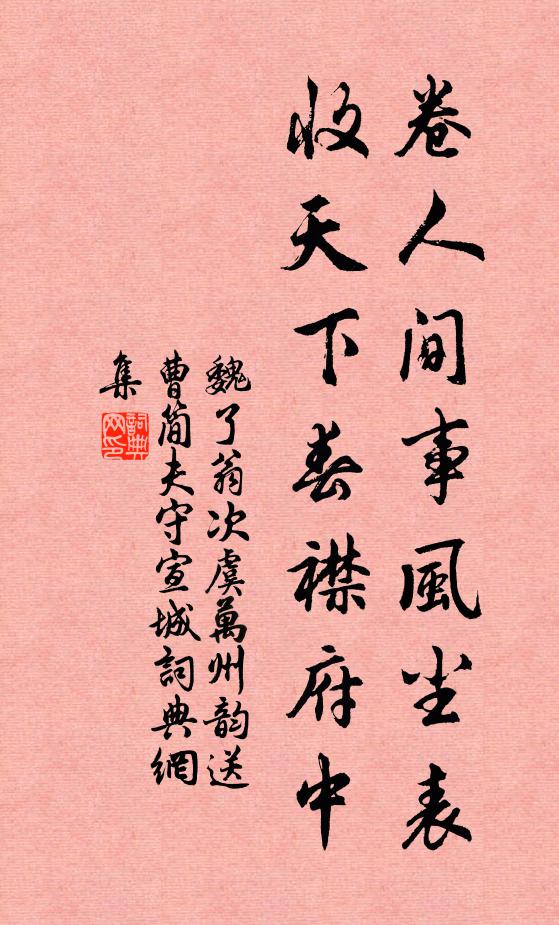 卷人间事風尘表
收天下春襟府中
魏了翁次虞萬州韵送
曹简夫守宣城詞典網
集
詞典
网印